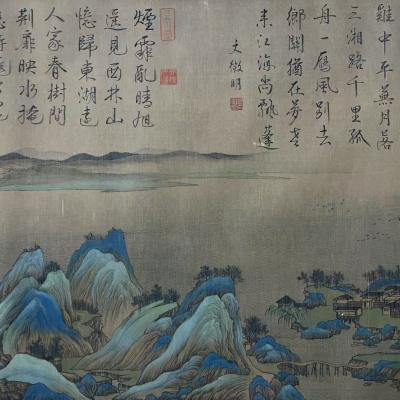 中平蕪月落
三湘路千里孤
舟一雁風別去
鄉關猶在夢老
来江海尚飄蓬
文徵明
煙霏亂晴旭
遥見西林山
憶歸東湖遠
人家春樹間
荊扉映水掩